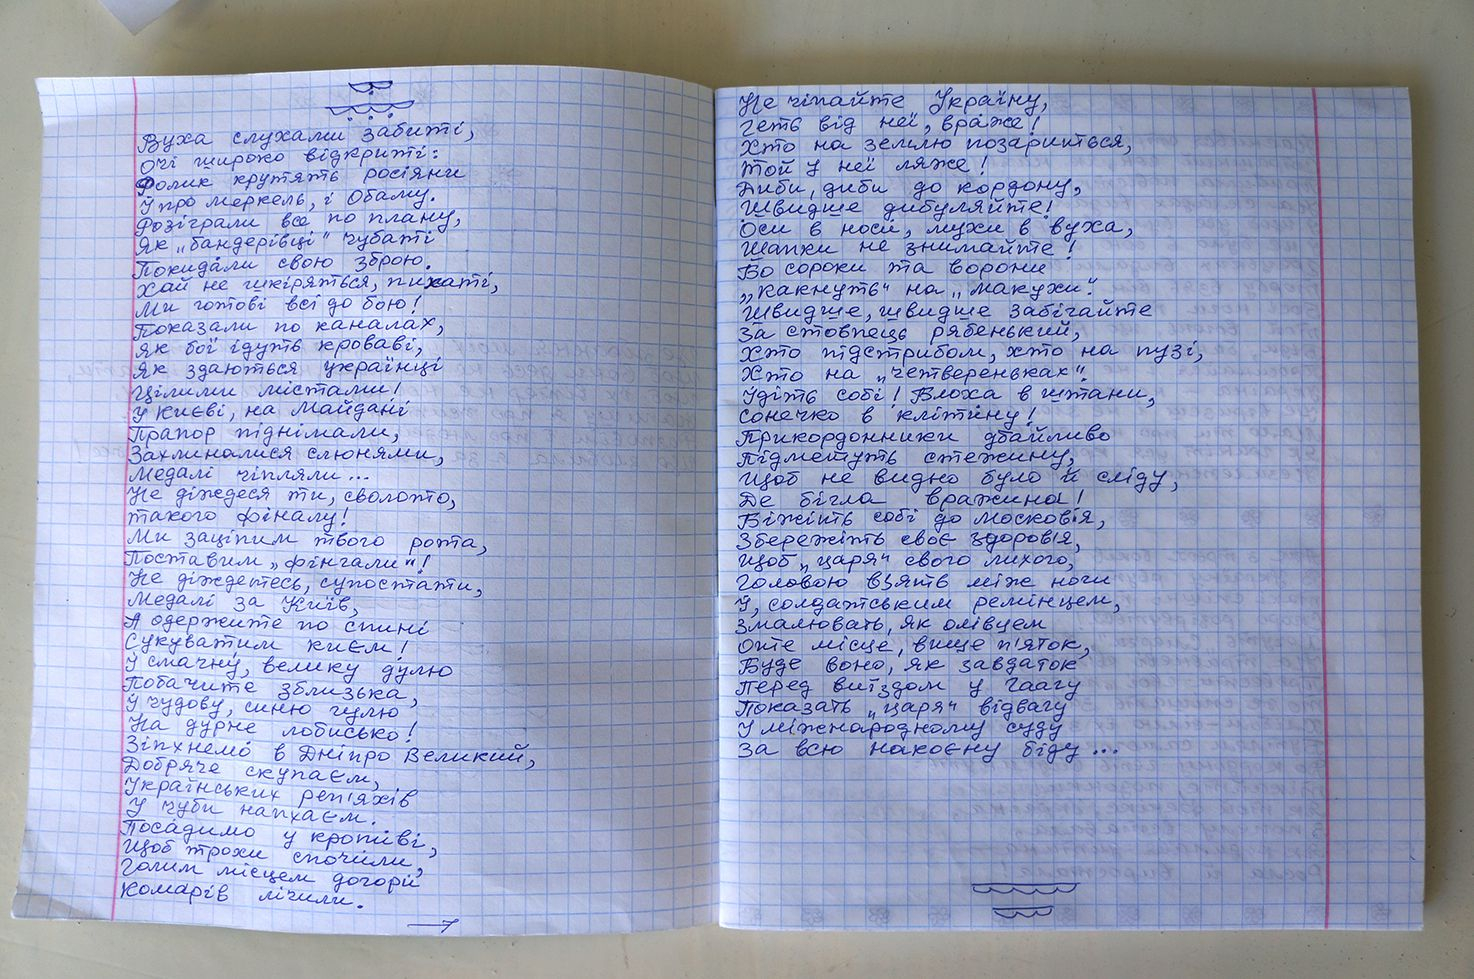 Вуха слухали забиті,
Очі широко відкриті:
Ролик крутять росіяни
Й про Меркель, і Обаму.
Розіграли все по плану,
Як „бандерівці" чубаті
Покидали свою зброю.
Хай не шкіряться, пихаті,
Ми готові всі до бою!
Показали по каналах,
Як бої ідуть кроваві,
Як здаються українці
Цілими містами!
У Києві, на Майдані
Прапор піднімали,
Захлиналися слюнями,
Медалі чіпляли...
Не діждеся ти, сволото,
такого фіналу!
Ми заціпим твого рота,
Поставим „фінгали"!
Не діждетесь, супостати,
Медалі за Київ,
А одержите по спині
Сукуватим києм!
Й смачну, велику дулю
Побачите зблизька,
Й чудову, синю гулю
На дурне лобисько!
Зіпхнемо в Дніпро Великий,
Добряче скупаєм,
Українських реп'яхів
У чуби напхаєм.
Посадимо у кропиві,
Щоб трохи спочили,
Голим місцем догори
Комарів лічили.
Не чіпайте Україну,
Геть від неї, враже!
Хто на землю позариться,
Той у неї ляже!
Диби, диби до кордону,
Швидше дибуляйте!
Оси в носи, мухи в вуха,
Шапки не знимайте!
Бо сороки та ворони
„какнуть" на „макухи".
Швидше, швидше забігайте
За стовпець рябенький,
Хто підстрибом, хто на пузі,
Хто на „четвереньках".
Йдіть собі! Блоха в штани,
Сонечко в клітину!
Прикордонники дбайливо
Підметуть стежину,
Щоб не видно було й сліду,
Де бігла вражина!
Біжіть собі до Московія,
Збережіть своє здоровія,
Щоб „царя" свого лихого,
Головою взять між ноги
Й, солдатським ремінцем,
Змалювать, як олівцем
Оте місце, вище п'яток,
Буде воно, як завдаток
Перед виїздом у Гаагу
Показать „царя" відвагу
У міжнародному суду
За всю накоєну біду...